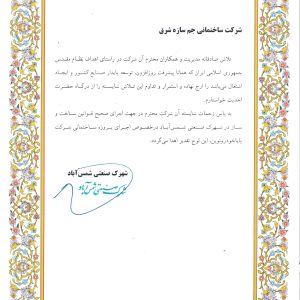 شرکت ساختمانی جم سازه شرق
تلاش صادقانه مدیریت و همکاران محترم آن شرکت در راستای اهداف نظام مقدس
جمهوری اسلامی ایران که همانا پیشرفت روزافزون، توسعه پایدار صنایع کشور و ایجاد
اشتغال می‌باشد را ارج نهاده و استمرار و تداوم این تلاش شایسته را از درگاه حضرت
احدیت خواستارم.
به پاس زحمات شایسته آن شرکت محترم در جهت اجرای صحیح قوانین ساخت و
ساز در شهرک صنعتی شمس‌آباد درخصوص اجرای پروژه ساختمانی شرکت
این لوح تقدیر اهدا می‌گردد.
شهرک صنعتی شمس‌آباد